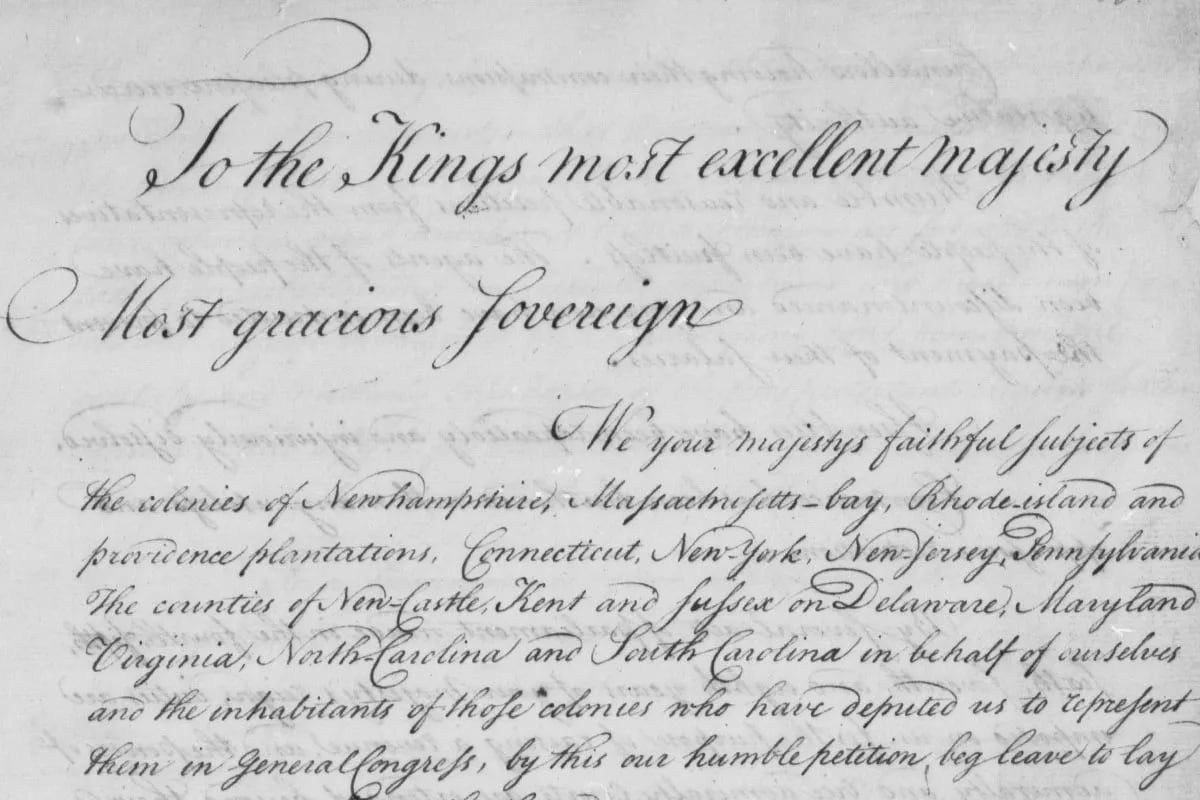 To the Kings most excellent majesty
Most gracious sovereign
We your majestys faithful subjects of
the colonies of Newhampshire, Massachusetts-bay, Rhode-island and
providence plantations, Connecticut, New-York, New-Jersey, Pennsylvania
The counties of New-Castle, Kent and sussex on Delaware, Maryland
Virginia, North-Carolina and South Carolina in behalf of ourselves
and the inhabitants of those colonies who have deputed us to represent
them in General Congress, by this our humble petition, beg leave to lay